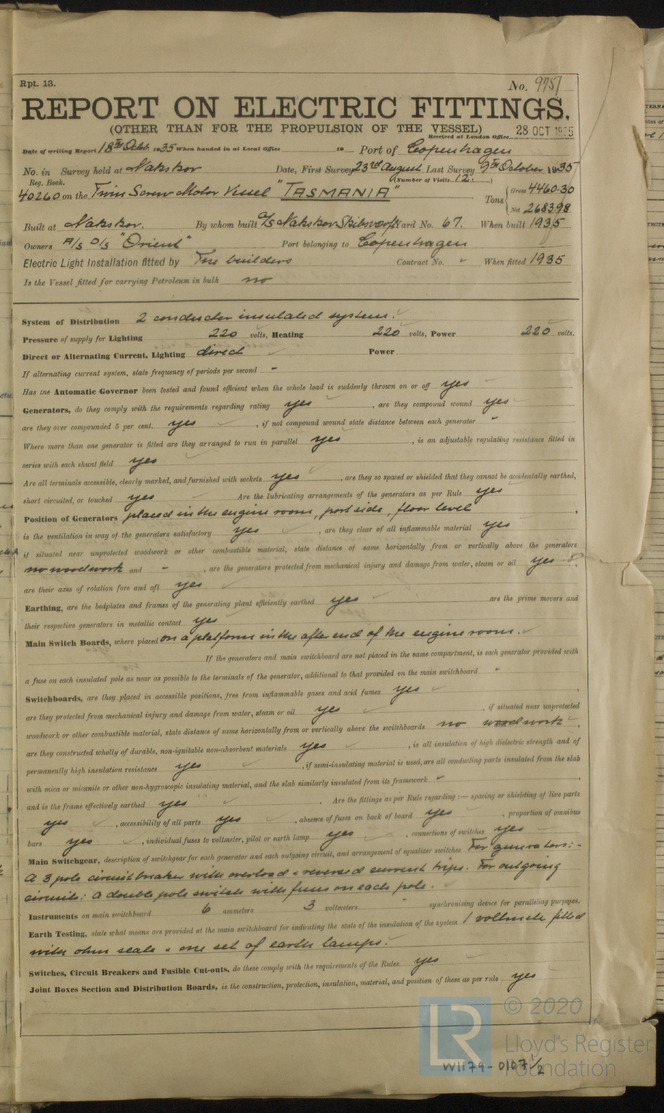 Rpt. 13.
No. 9951
REPORT ON ELECTRIC FITTINGS,
(OTHER THAN FOR THE PROPULSION OF THE VESSEL)
Received at London Office 28 OCT 1935
Date of writing Report 18th Octbr. 1935 When handed in at Local Office 19 Port of Copenhagen
No. in Survey held at Nakskov Date, First Survey 23rd August Last Survey 9th October 1935
Reg. Book. (Number of Visits 12.)
40260 on the Twin Screw Motor Vessel "TASMANIA" Tons { Gross 4460.30
Net 2683.98
Built at Nakskov. By whom built A/S Nakskov Skibsværft Yard No. 67. When built 1935
Owners A/S D/S "Orient" Port belonging to Copenhagen
Electric Light Installation fitted by The builders Contract No. When fitted 1935
Is the Vessel fitted for carrying Petroleum in bulk no
System of Distribution 2 conductor insulated system.
Pressure of supply for Lighting 220 volts, Heating 220 volts, Power 220 volts.
Direct or Alternating Current, Lighting direct Power
If alternating current system, state frequency of periods per second "
Has the Automatic Governor been tested and found efficient when the whole load is suddenly thrown on or off yes
Generators, do they comply with the requirements regarding rating yes, are they compound wound yes
are they over compounded 5 per cent. yes, if not compound wound state distance between each generator "
Where more than one generator is fitted are they arranged to run in parallel yes, is an adjustable regulating resistance fitted in
series with each shunt field yes
Are all terminals accessible, clearly marked, and furnished with sockets yes, are they so spaced or shielded that they cannot be accidentally earthed,
short circuited, or touched yes Are the lubricating arrangements of the generators as per Rule yes
Position of Generators placed in the engine room, port side, floor level
is the ventilation in way of the generators satisfactory yes, are they clear of all inflammable material yes
if situated near unprotected woodwork or other combustible material, state distance of same horizontally from or vertically above the generators
no woodwork and ", are the generators protected from mechanical injury and damage from water, steam or oil yes
are their axes of rotation fore and aft yes
Earthing, are the bedplates and frames of the generating plant efficiently earthed yes are the prime movers and
their respective generators in metallic contact yes
Main Switch Boards, where placed on a platform in the after end of the engine room.
If the generators and main switchboard are not placed in the same compartment, is each generator provided with
a fuse on each insulated pole as near as possible to the terminals of the generator, additional to that provided on the main switchboard "
Switchboards, are they placed in accessible positions, free from inflammable gases and acid fumes yes
are they protected from mechanical injury and damage from water, steam or oil yes, if situated near unprotected
woodwork or other combustible material, state distance of same horizontally from or vertically above the switchboards no woodwork,
are they constructed wholly of durable, non-ignitable non-absorbent materials yes, is all insulation of high dielectric strength and of
permanently high insulation resistance yes, if semi-insulating material is used, are all conducting parts insulated from the slab
with mica or micanite or other non-hygroscopic insulating material, and the slab similarly insulated from its framework "
and is the frame effectively earthed yes Are the fittings as per Rule regarding:— spacing or shielding of live parts
yes, accessibility of all parts yes, absence of fuses on back of board yes, proportion of omnibus
bars yes, individual fuses to voltmeter, pilot or earth lamp yes, connections of switches yes
Main Switchgear, description of switchgear for each generator and each outgoing circuit, and arrangement of equalizer switches For generators:-
A 3 pole circuit breaker with overload & reversed current trips. For outgoing
circuits: A double pole switch with fuses on each pole.
Instruments on main switchboard 6 ammeters 3 voltmeters " synchronising device for paralleling purposes.
Earth Testing, state what means are provided at the main switchboard for indicating the state of the insulation of the system 1 voltmeter fitted
with ohm scale & one set of earth lamps.
Switches, Circuit Breakers and Fusible Cut-outs, do these comply with the requirements of the Rules yes
Joint Boxes Section and Distribution Boards, is the construction, protection, insulation, material, and position of these as per rule yes
© 2020
LR Lloyd's Register
Foundation
W1179-0107 1/2